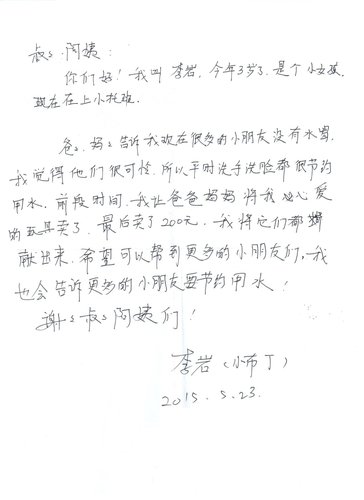 叔ㄑ阿姨:
你们好!我叫李岩,今年3岁了,是个小女孩,
现在在上小托班.
爸ㄑ妈ㄑ告诉我现在很多的小朋友没有水喝,
我觉得他们很可怜,所以平时洗手洗脸都很节约
用水,前段时间,我让爸爸妈妈将我心爱
的玩具卖了,最后卖了200元,我将它们都捐
献出来,希望可以帮到更多的小朋友们,我
也会告诉更多的小朋友要节约用水!
谢ㄑ叔ㄑ阿姨们!
李岩(小布丁)
2015.5.23.